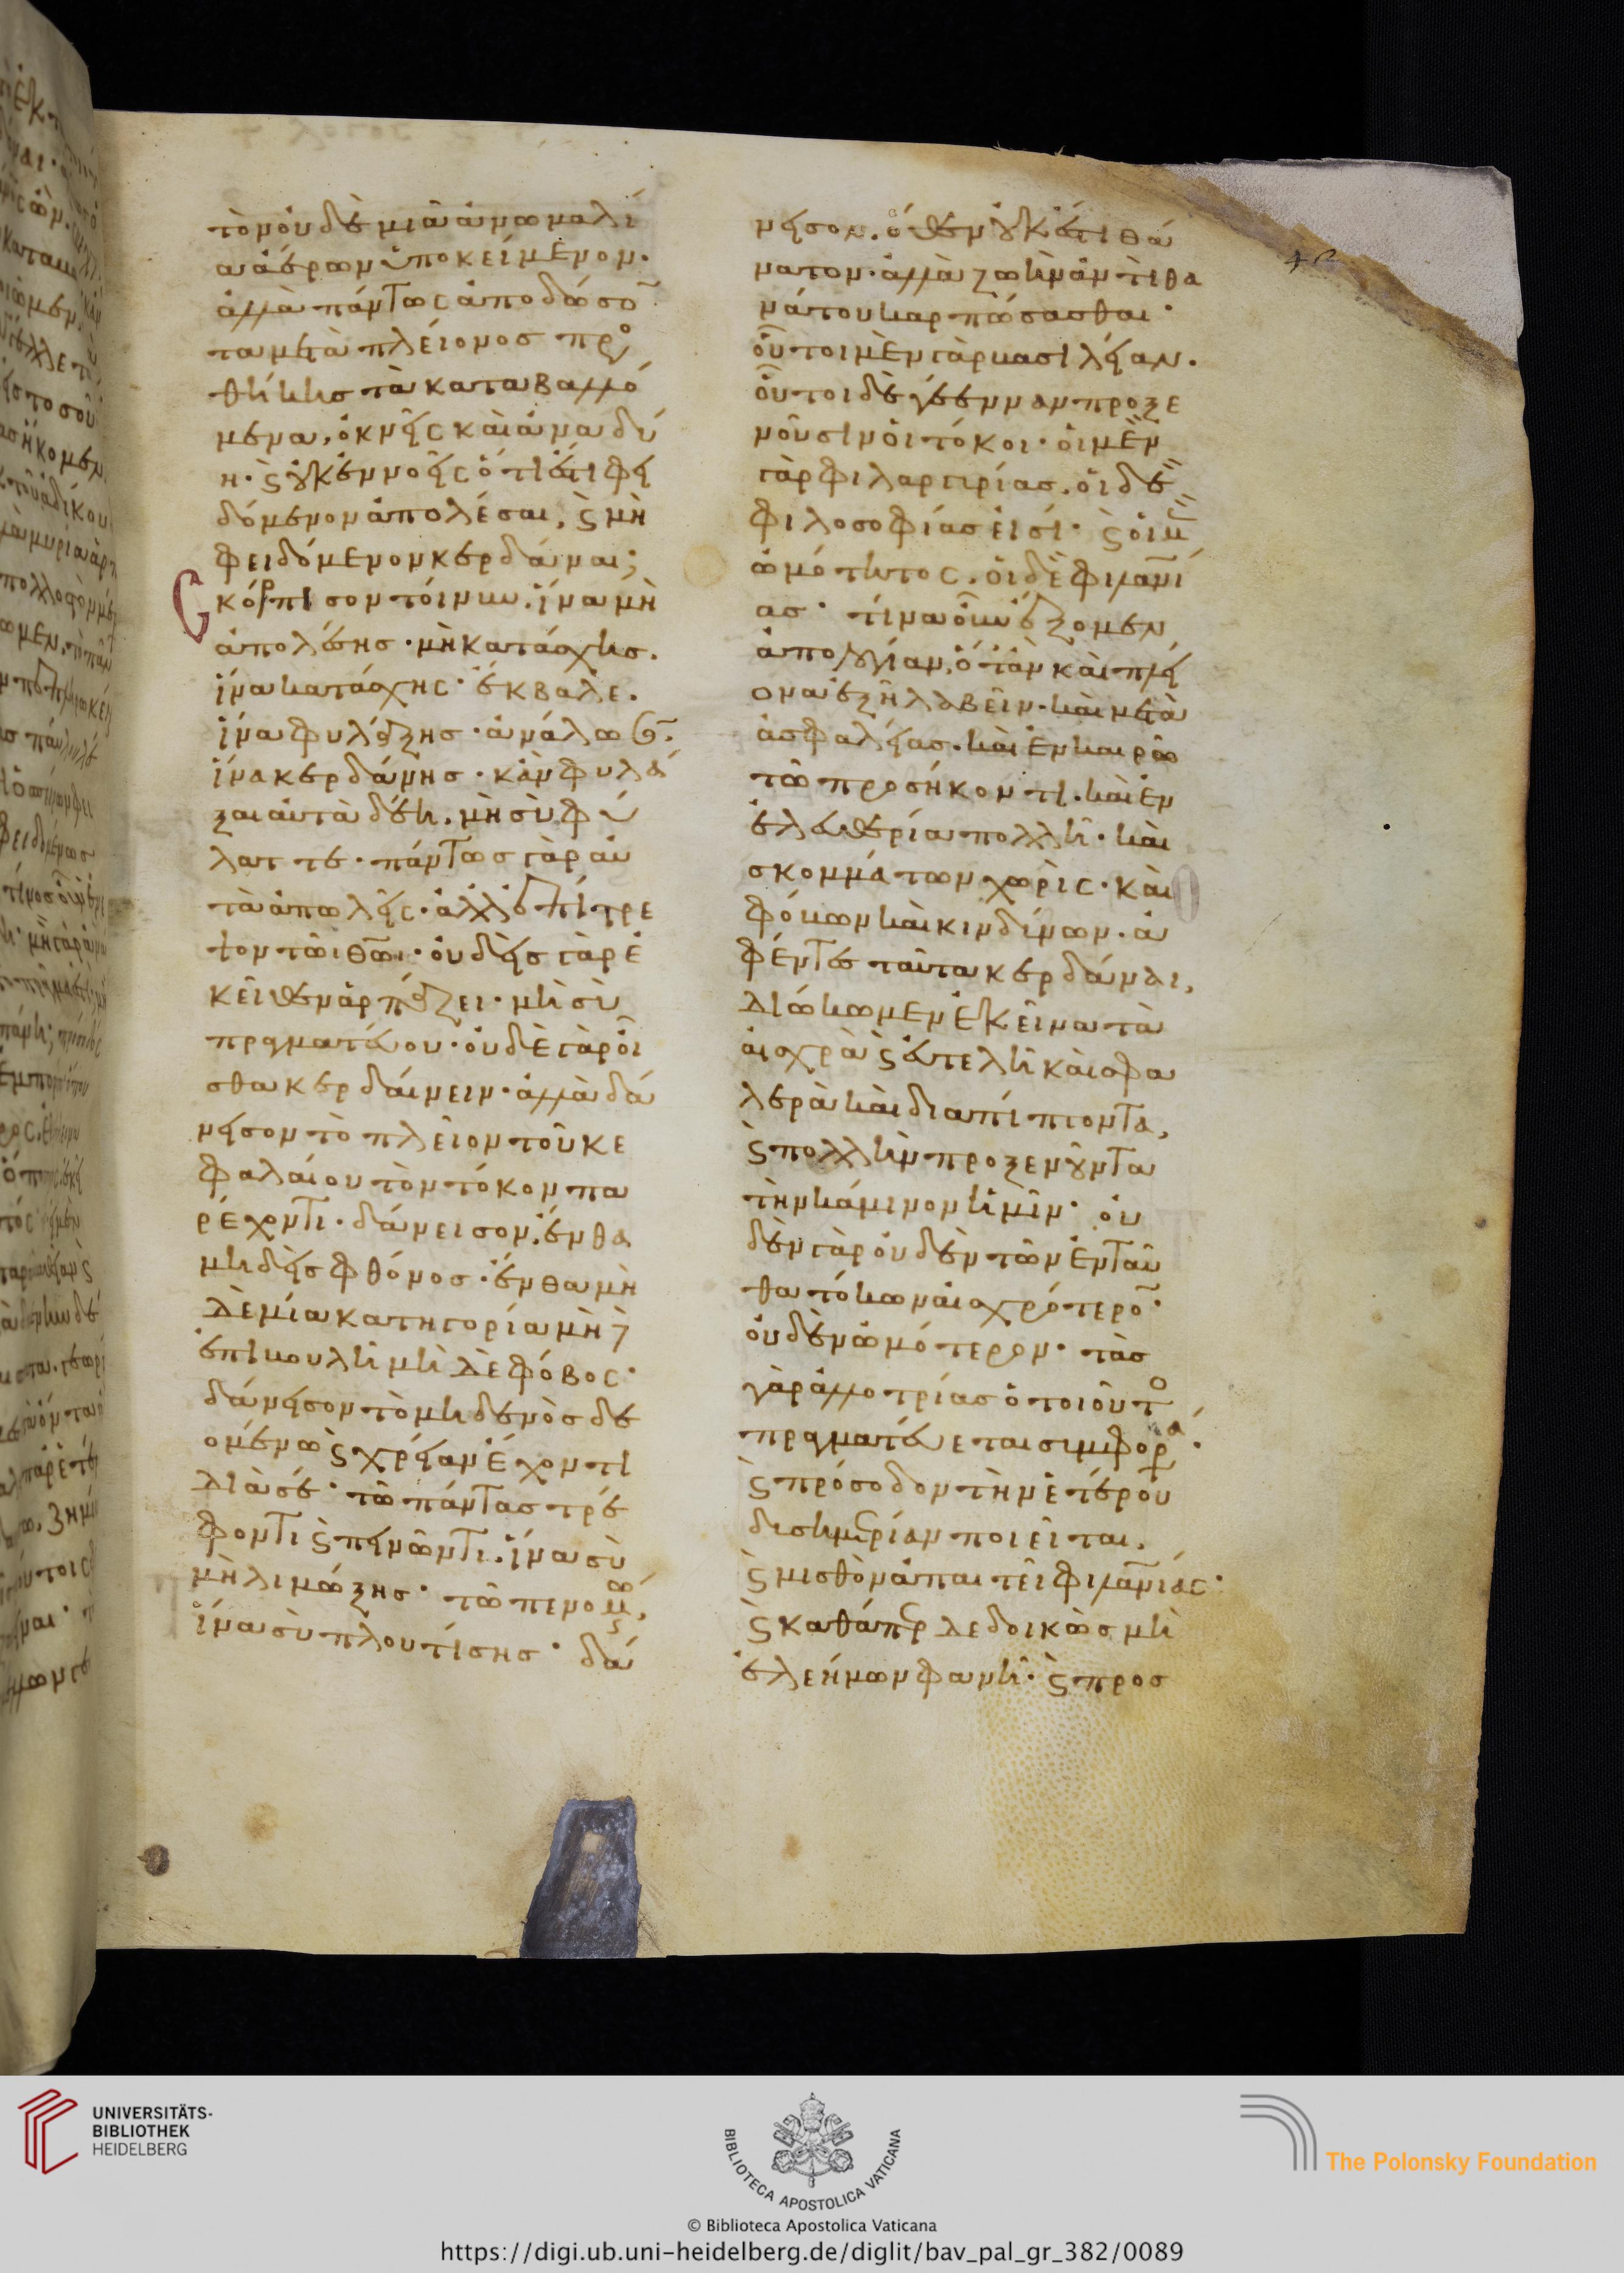 τὸν οὐδὲ μιᾶ ἀνωμαλί
α ἀέρων ὑποκείμενον·
ἀλλὰ πάντως ἀποδώσο̄
τα μετὰ πλείονος προ
θήκης τὰ καταβαλλό
μενα, ὀκνεῖς καὶ ἀναδύ
η· ϛ οὐκ ἐννοεῖς ὅτι ἔτι φει
δόμενον ἀπολέσαι, ϛ μὴ
φειδόμενον κερδάναι;
Σκόρπισον τοίνυν, ἵνα μὴ
ἀπολέσης· μὴ κατάσχης.
ἵνα κατάσχης· ἔκβαλε.
ἵνα φυλάξης· ἀνάλωσ̄.
ἵνα κερδάνης· κἂν φυλά
ξαι αὐτὰ δέη, μὴ σὺ φύ
λαττε· πάντως γὰρ αὐ
τὰ ἀπωλεῖς· ἀλλ' ἐπίτρε
ψον τῶι θ̄ω̄ι· οὐδεὶς γὰρ ἐ
κεῖθεν ἁρπάζει· μὴ σὺ
πραγματεύου· οὐδὲ γὰρ οἶ
σθα κερδαίνειν· ἀλλὰ δά
νεισον τὸ πλεῖον τοῦ κε
φαλαίου τὸν τόκον πα
ρέχοντι· δάνεισον, ἔνθα
μηδεὶς φθόνος· ἔνθα μη
δὲ μία κατηγορία μὴ δ
ἐπιβουλὴ μὴ δὲ φόβος·
δάνεισον τὸ μηδενὸς δε
ομένω ϛ χρείαν ἔχοντι
διὰ σέ· τῶ πάντας τρέ
φοντι ϛ πεινῶντι, ἵνα σὺ
μὴ λιμώξης· τῶ πενομ̄ω,
ἵνα σὺ πλουτίσης· δά
νεισον, ὅθεν οὐκ ἔτι θά
νατον· ἀλλὰ ζωὴν ἀντὶ θα
νάτου καρπώσασθαι·
οὗτοι μὲν γὰρ βασιλείαν.
οὗτοι δὲ γέενναν προξε
νοῦσιν οἱ τόκοι· οἱ μὲν
γὰρ φιλαργυρίας, οἱ δὲ
φιλοσοφίας εἰσί· ϛ οἱ μ̄
ὠμότητος. οἱ δὲ φιλαν̄ί
ας· τίνα οὖν ἕξομεν
ἀπολογίαν, ὅταν καὶ πλεί
ονα ἐξῆ λαβεῖν· καὶ μετὰ
ἀσφαλείας. καὶ ἐν καιρῶ
τῶ προσήκοντι. καὶ ἐν
ἐλευθερία πολλῆ· καὶ
σκομμάτων χωρὶς· καὶ
φόβων καὶ κινδύνων. ἀ
φέντες ταῦτα κερδάναι,
διώκωμεν ἐκεῖνα τὰ
αἰσχρὰ ϛ εὐτελῆ καὶ σφα
λερὰ καὶ διαπίπτοντα,
ϛ πολλὴν προξενοῦντα
τὴν κάμινον ἡμῖν· οὐ
δὲν γὰρ οὐδὲν τῶν ἐνταῦ
θα τόκων αἰσχρότερο̄·
οὐδὲν ὠμότερον· τὰς
γὰρ ἀλλοτρίας ὁ τοιοῦτο
πραγματεύεται συμφορά·
ϛ πρόσοδον τὴν ἑτέρου
δυσημερίαν ποιεῖται,
ϛ μισθὸν ἀπαιτεῖ φιλαν̄ίας·
ϛ καθάπερ δεδοικὼς μὴ
ἐλεήμων φανῆ· ϛ προσ
UNIVERSITÄTS-
BIBLIOTHEK
HEIDELBERG
BIBLIOTECA APOSTOLICA VATICANA
© Biblioteca Apostolica Vaticana
The Polonsky Foundation
https://digi.ub.uni-heidelberg.de/diglit/bav_pal_gr_382/0089